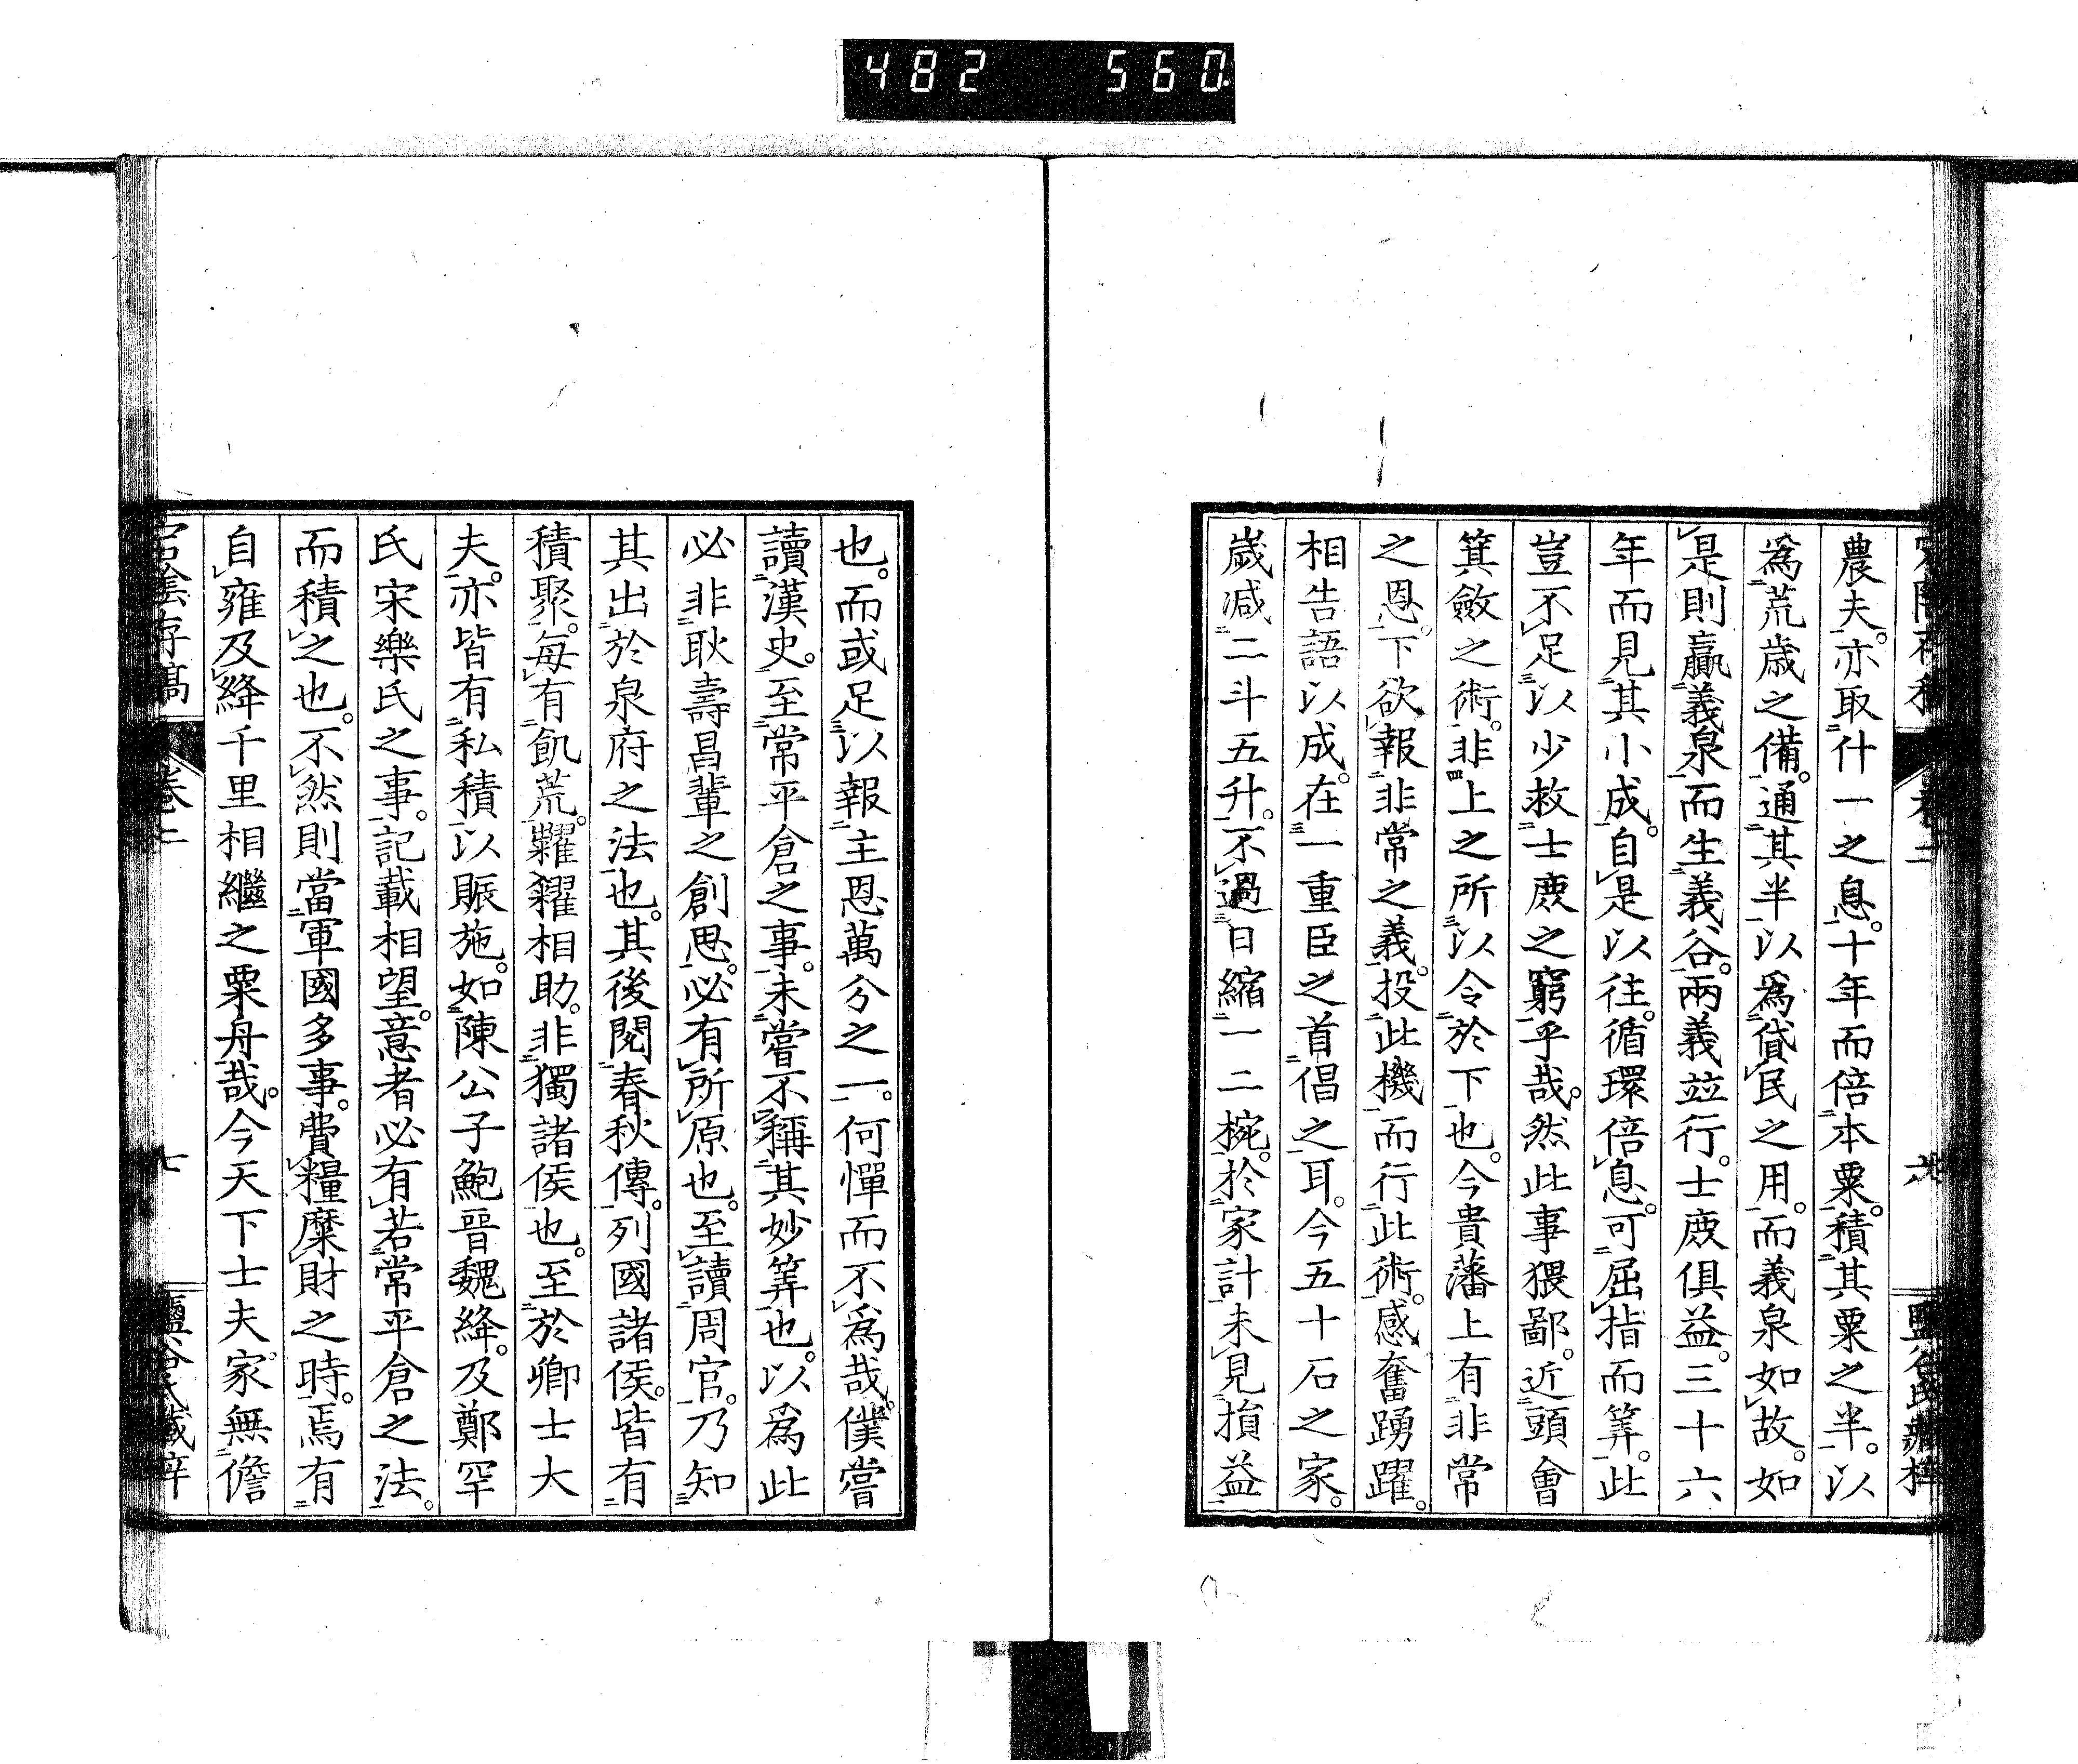 482 560
農夫。亦取什一之息。十年而倍本粟。積其粟之半。以
爲荒歳之備。通其半以爲貸民之用。而義泉如故。如
是則贏義泉而生義谷。兩義並行。士庶俱益。三十六
年而見其小成。自是以往。循環倍息。可屈指而筭。此
豈不足以少救士庶之窮乎哉。然此事猥鄙。近頭會
箕斂之術。非上之所以令於下也。今貴藩上有非常
之恩。下欲報非常之義。投此機而行此術。感奮踴躍。
相告語以成。在一重臣之首倡之耳。今五十石之家。
歳減二斗五升。不過日縮一二椀。於家計未見損益
也。而或足以報主恩萬分之一。何憚而不爲哉。僕嘗
讀漢史。至常平倉之事。未嘗不稱其妙筭也。以爲此
必非耿壽昌輩之創思。必有所原也。至讀周官。乃知
其出於泉府之法也。其後閲春秋傳。列國諸侯。皆有
積聚。毎有飢荒。糶糴相助。非獨諸侯也。至於卿士大
夫。亦皆有私積以賑施。如陳公子鮑晉魏絳。及鄭罕
氏宋樂氏之事。記載相望。意者必有若常平倉之法。
而積之也。不然則當軍國多事。費糧糜財之時。焉有
自雍及絳千里相繼之粟舟哉。今天下士夫家無儋
卷二
七